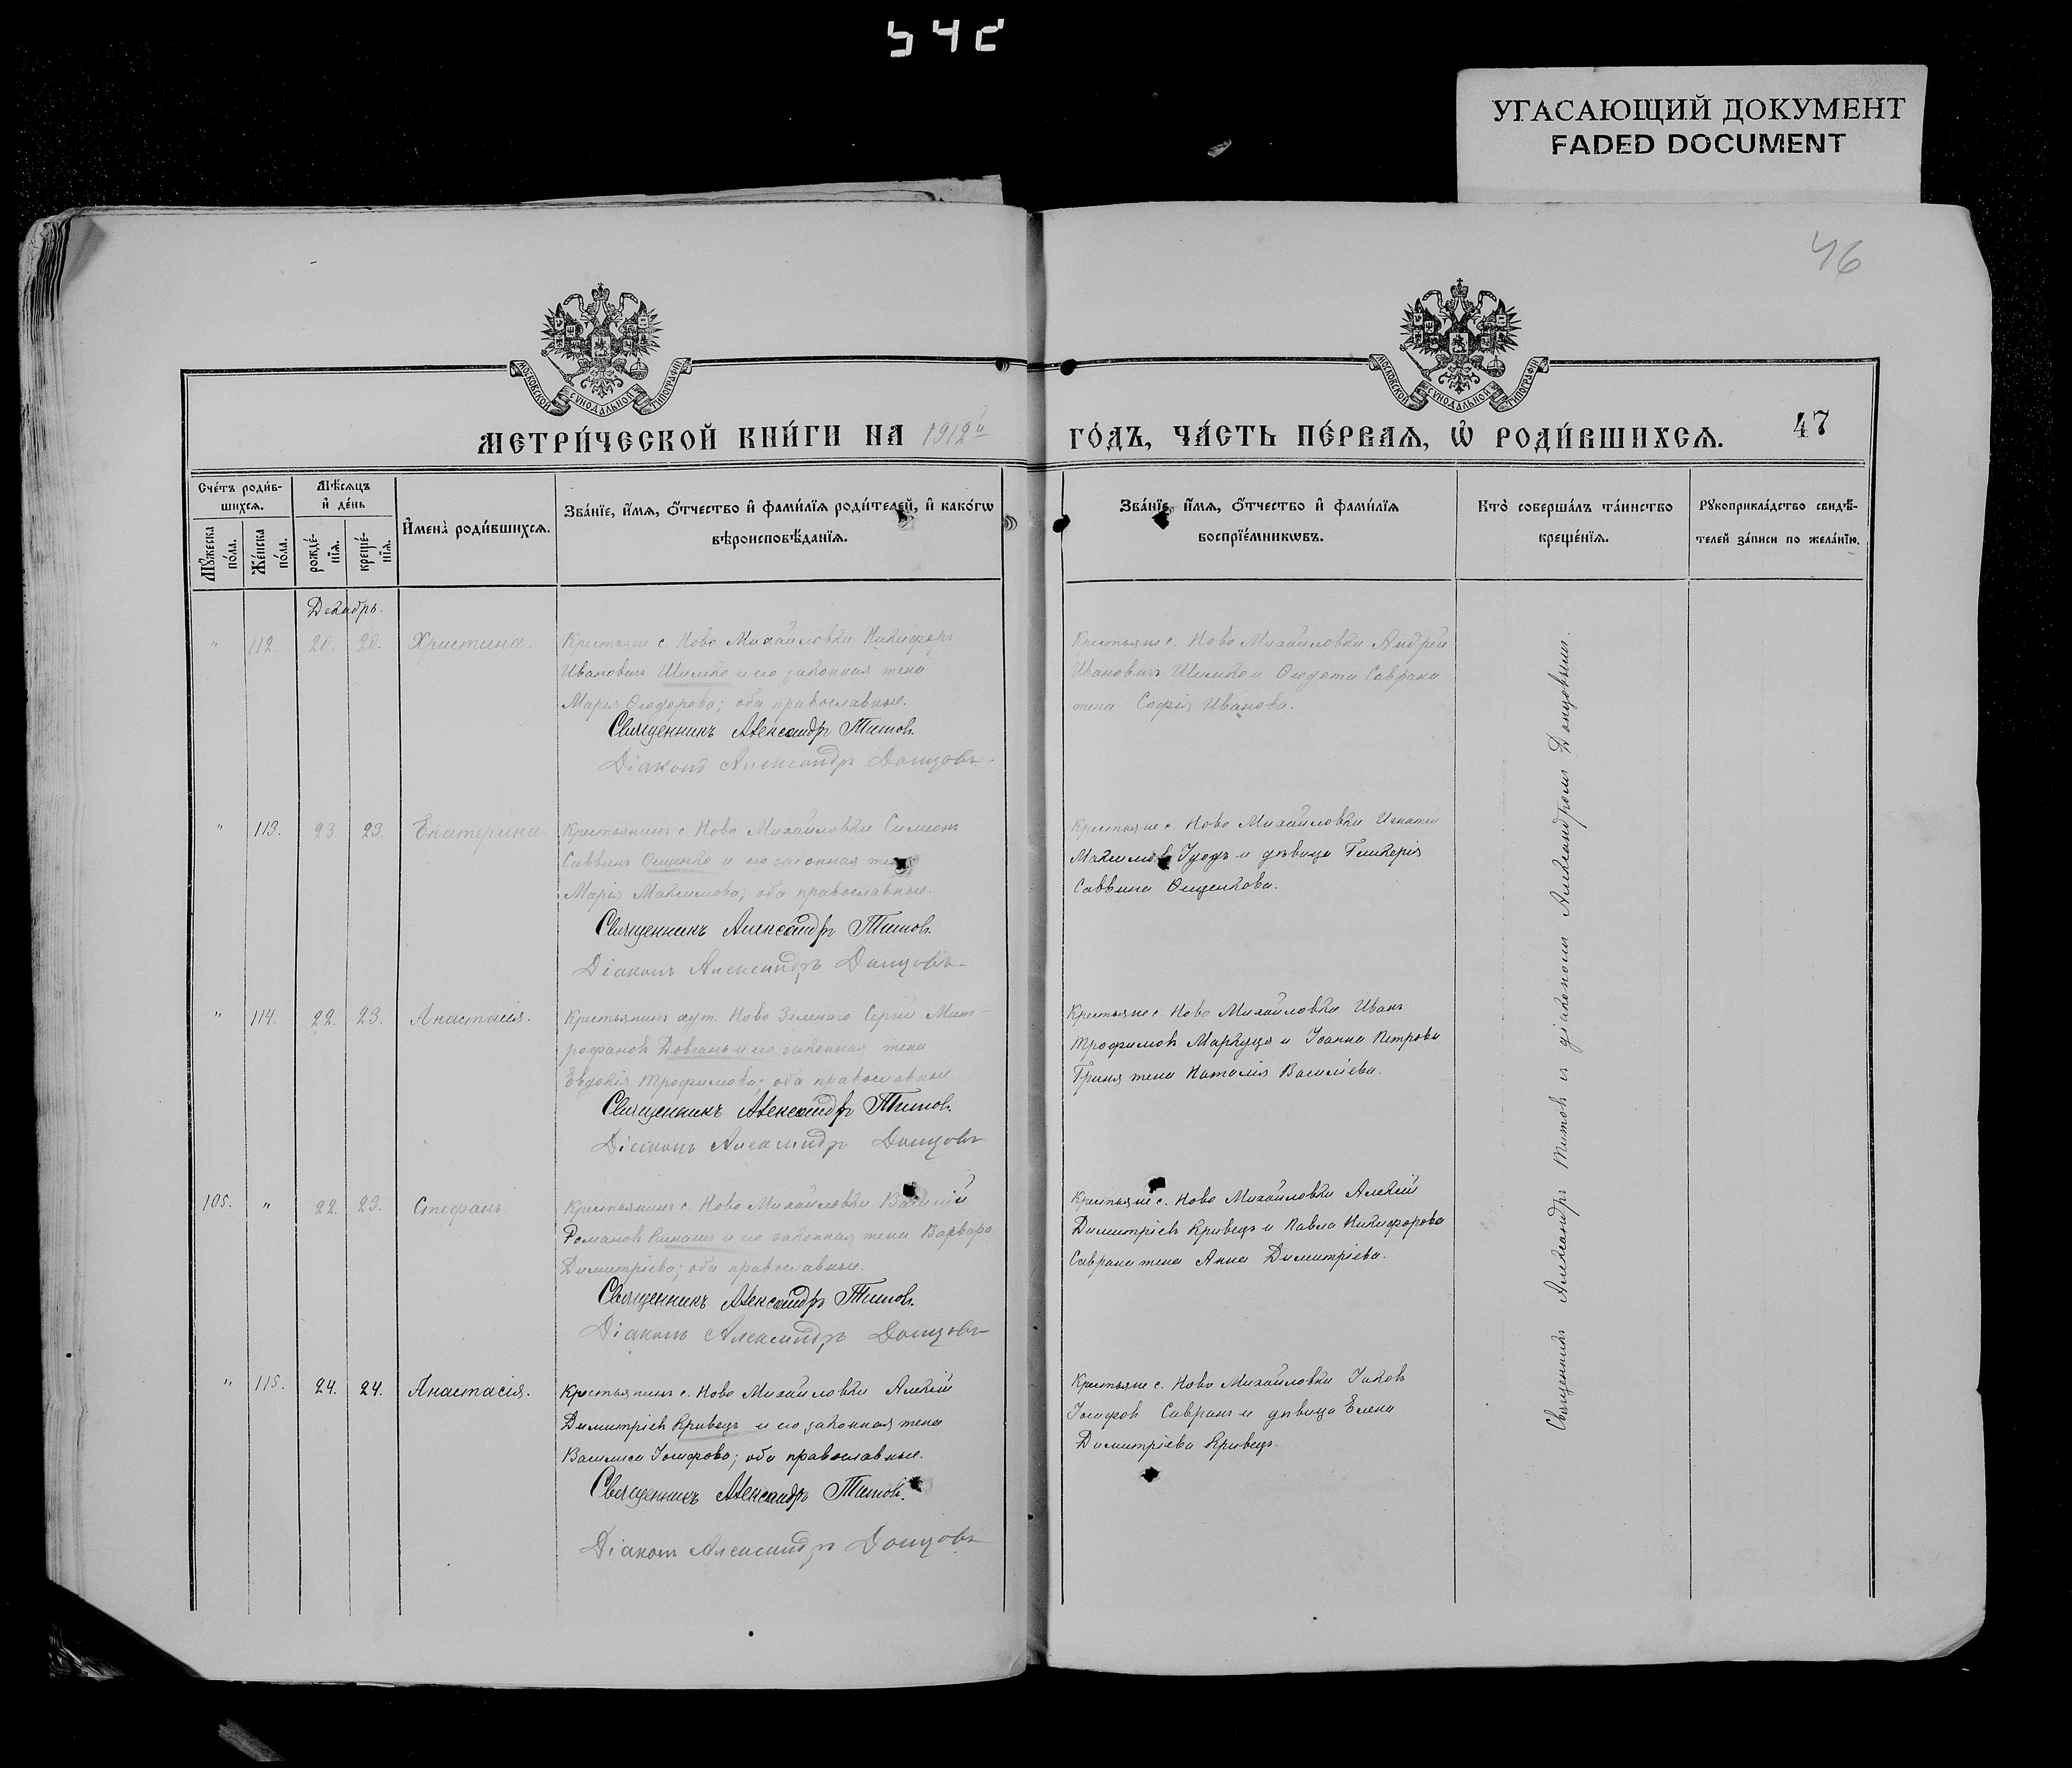 542
УГАСАЮЩИЙ ДОКУМЕНТ
FADED DOCUMENT
46
МОСКОВСКОЙ СѴНОДАЛЬНОЙ ТИПОГРАФІИ
МОСКОВСКОЙ СѴНОДАЛЬНОЙ ТИПОГРАФІИ
МЕТРИ́ЧЕСКОЙ КНИ́ГИ НА 1912й ГО́ДЪ, ЧА́СТЬ ПЕ́РВАѦ, Ѡ҆ РОДИ́ВШИХСѦ.
47
Сче́тъ роди́в-
шихсѧ.
Мꙋ́жеска по́ла.
Же́нска по́ла.
Мѣ́сѧцъ
и҆ де́нь
рожде́-
нїѧ.
креще́-
нїѧ.
И҆мена̀ роди́вшихсѧ.
Зва́нїе, и҆́мѧ, ѻ҆́тчество и҆ фами́лїѧ роди́телей, и҆ како́гѡ
вѣроисповѣ́данїѧ.
Зва́нїе, и҆́мѧ, ѻ҆́тчество и҆ фами́лїѧ
воспрїе́мникѡвъ.
Кто̀ соверша́лъ та́инство
креще́нїѧ.
Рꙋкоприкла́дство свидѣ́-
телей за́писи по жела́нїю.
Декабрь.
" 112. 20. 20. Христина.
Крестьяне с. Ново Михайловки Никифоръ
Ивановъ Шимко и его законная жена
Марія Ѳеодорова; оба православные.
Священникъ Александръ Титовъ.
Діаконъ Александръ Донцовъ.
Крестьяне с. Ново Михайловки Андрей
Ивановъ Шимко и Ѳеодота Саврана
жена Софія Иванова.
" 113. 23. 23. Екатерина.
Крестьянинъ с. Ново Михайловки Симеонъ
Саввинъ Ощенко и его законная жена
Марія Максимова; оба православные.
Священникъ Александръ Титовъ.
Діаконъ Александръ Донцовъ.
Крестьяне с. Ново Михайловки Игнатій
Максимовъ Удодъ и дѣвица Гликерія
Саввина Ощенкова.
" 114. 22. 23. Анастасія.
Крестьянинъ хут. Ново Зеленаго Сергій Мит-
рофановъ Довгань и его законная жена
Евдокія Трофимова; оба православные.
Священникъ Александръ Титовъ.
Діаконъ Александръ Донцовъ
Крестьяне с. Ново Михайловки Иванъ
Трофимовъ Маркуца и Іоанна Петрова
Гриня жена Наталія Василіева.
105. " 22. 23. Стефанъ.
Крестьянинъ с. Ново Михайловки Василій
Романовъ и его законная жена Варвара
Димитріева; оба православные.
Священникъ Александръ Титовъ.
Діаконъ Александръ Донцовъ
Крестьяне с. Ново Михайловки Алексій
Димитріевъ Кривецъ и Павла Никифорова
Саврана жена Анна Димитріева.
" 115. 24. 24. Анастасія.
Крестьянинъ с. Ново Михайловки Алексій
Димитріевъ Кривецъ и его законная жена
Василиса Іосифова; оба православные.
Священникъ Александръ Титовъ.
Діаконъ Александръ Донцовъ
Крестьяне с. Ново Михайловки Іаковъ
Іосифовъ Савранъ и дѣвица Елена
Димитріева Кривецъ.
Священникъ Александръ Титовъ и діакономъ Александромъ Донцовымъ.